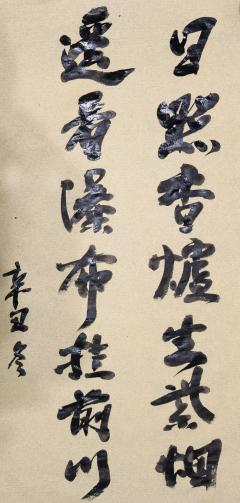 日照香爐生紫烟
遥看瀑布挂前川
辛丑冬